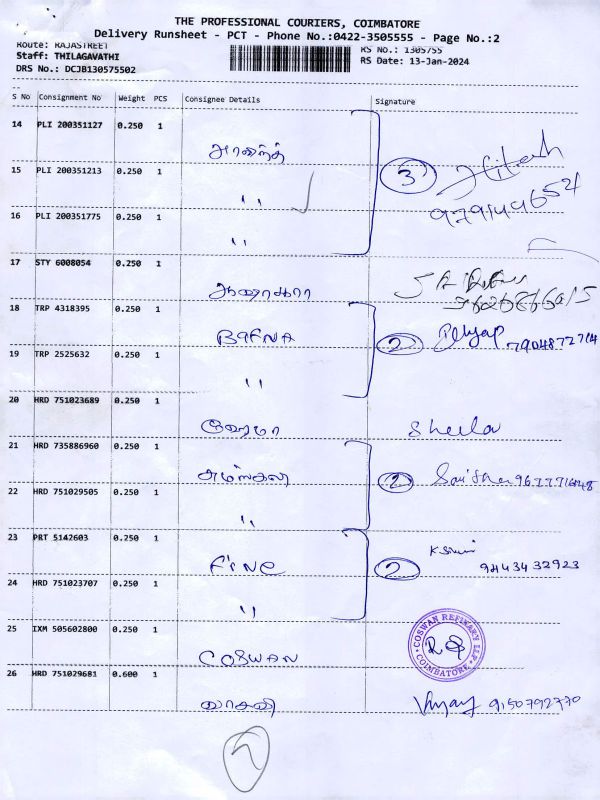 THE PROFESSIONAL COURIERS, COIMBATORE
Delivery Runsheet - PCT - Phone No.:0422-3505555 - Page No.:2
Route: RAJASTREET RS No.: 1305755
Staff: THILAGAVATHI RS Date: 13-Jan-2024
DRS No.: DCJB130575502
S No Consignment No Weight PCS Consignee Details Signature
14 PLI 200351127 0.250 1 ஆனந்த்
15 PLI 200351213 0.250 1 ,, 3
16 PLI 200351775 0.250 1 ,,
17 STY 6008054 0.250 1
18 TRP 4318395 0.250 1 BafNA 2 7904872714
19 TRP 2525632 0.250 1 ,,
20 HRD 751023689 0.250 1 Sheela
21 HRD 735886960 0.250 1 2
22 HRD 751029505 0.250 1 ,,
23 PRT 5142603 0.250 1 FiNe 2 9443432923
24 HRD 751023707 0.250 1 ,,
25 IXM 505602800 0.250 1 COSWAN COSWAN REFINARY LLP COIMBATORE
26 HRD 751029681 0.600 1 வாசவி Vijay 9150792770